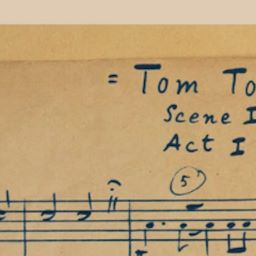 = Tom To
Scene I
Act I
5